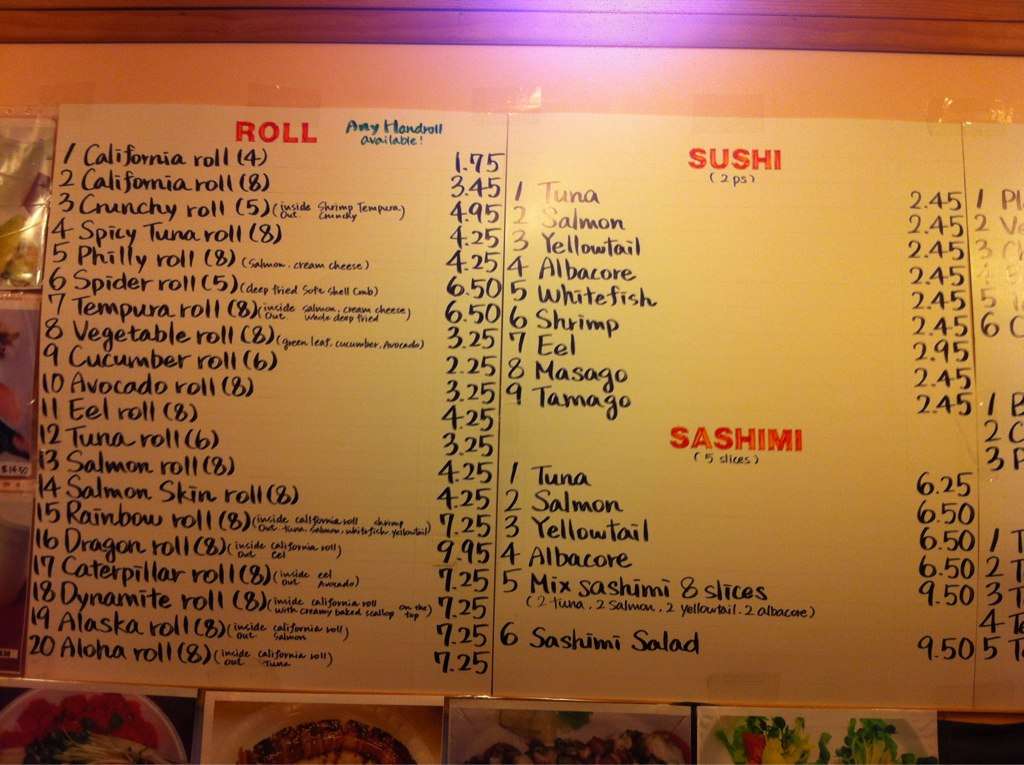 ROLL
Any Handroll available!
1 California roll (4) 1.75
2 California roll (8) 3.45
3 Crunchy roll (5) (inside Shrimp Tempura, Out Crunchy) 4.95
4 Spicy Tuna roll (8) 4.25
5 Philly roll (8) (Salmon, cream cheese) 4.25
6 Spider roll (5) (deep fried Soft shell Crab) 6.50
7 Tempura roll (8) (inside salmon, cream cheese) Out whole deep fried 6.50
8 Vegetable roll (8) (green leaf, cucumber, Avocado) 3.25
9 Cucumber roll (6) 2.25
10 Avocado roll (8) 3.25
11 Eel roll (8) 4.25
12 Tuna roll (6) 3.25
13 Salmon roll (8) 4.25
14 Salmon Skin roll (8) 4.25
15 Rainbow roll (8) (inside california roll shrimp Out tuna, salmon, whitefish yellowtail) 7.25
16 Dragon roll (8) (inside california roll) out eel 9.95
17 Caterpillar roll (8) (inside eel out Avocado) 7.25
18 Dynamite roll (8) (inside california roll with creamy baked scallop on the top) 7.25
19 Alaska roll (8) (inside california roll) out Salmon 7.25
20 Aloha roll (8) (inside california roll) out tuna 7.25
SUSHI
(2 ps)
1 Tuna 2.45
2 Salmon 2.45
3 Yellowtail 2.45
4 Albacore 2.45
5 Whitefish 2.45
6 Shrimp 2.45
7 Eel 2.95
8 Masago 2.45
9 Tamago 2.45
SASHIMI
(5 slices)
1 Tuna 6.25
2 Salmon 6.50
3 Yellowtail 6.50
4 Albacore 6.50
5 Mix sashimi 8 slices 9.50
(2 tuna, 2 salmon, 2 yellowtail, 2 albacore)
6 Sashimi Salad 9.50
1
2
3
5
6
1
2
3
1
2
3
4
5
$14.50